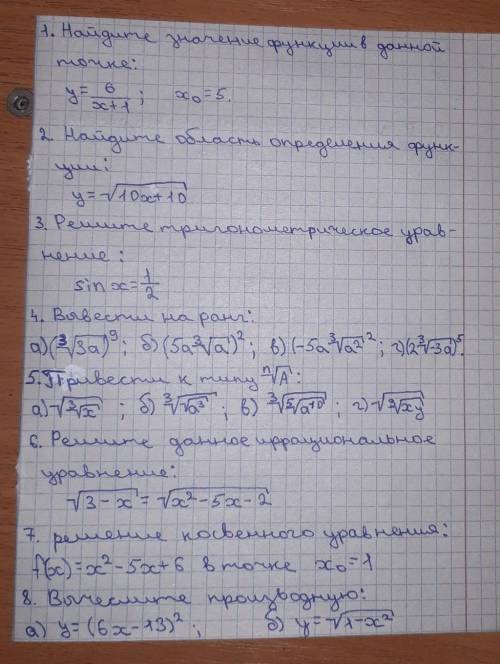 1. Найдите значение функции в данной
точке:
y = 6/(x+1);    x₀ = 5.
2. Найдите область определения функ-
ции:
y = √(10x+10)
3. Решите тригонометрическое урав-
нение:
sin x = 1/2
4. Вывести на ранг:
а) (∛(3a))⁹; б) (5a∛a)²; в) (-5a∛(a²))²; г) (2∛(-3a))⁵.
5. Привести к типу ⁿ√A:
а) √(∛x); б) ∛(√(a³)); в) ∛(∛(a¹⁰)); г) √(∛(xy))
6. Решите данное иррациональное
уравнение:
√(3-x) = √(x²-5x-2)
7. решение косвенного уравнения:
f(x) = x²-5x+6 в точке x₀ = 1
8. Вычеслите производную:
а) y = (6x-13)²;    б) y = √(1-x²)